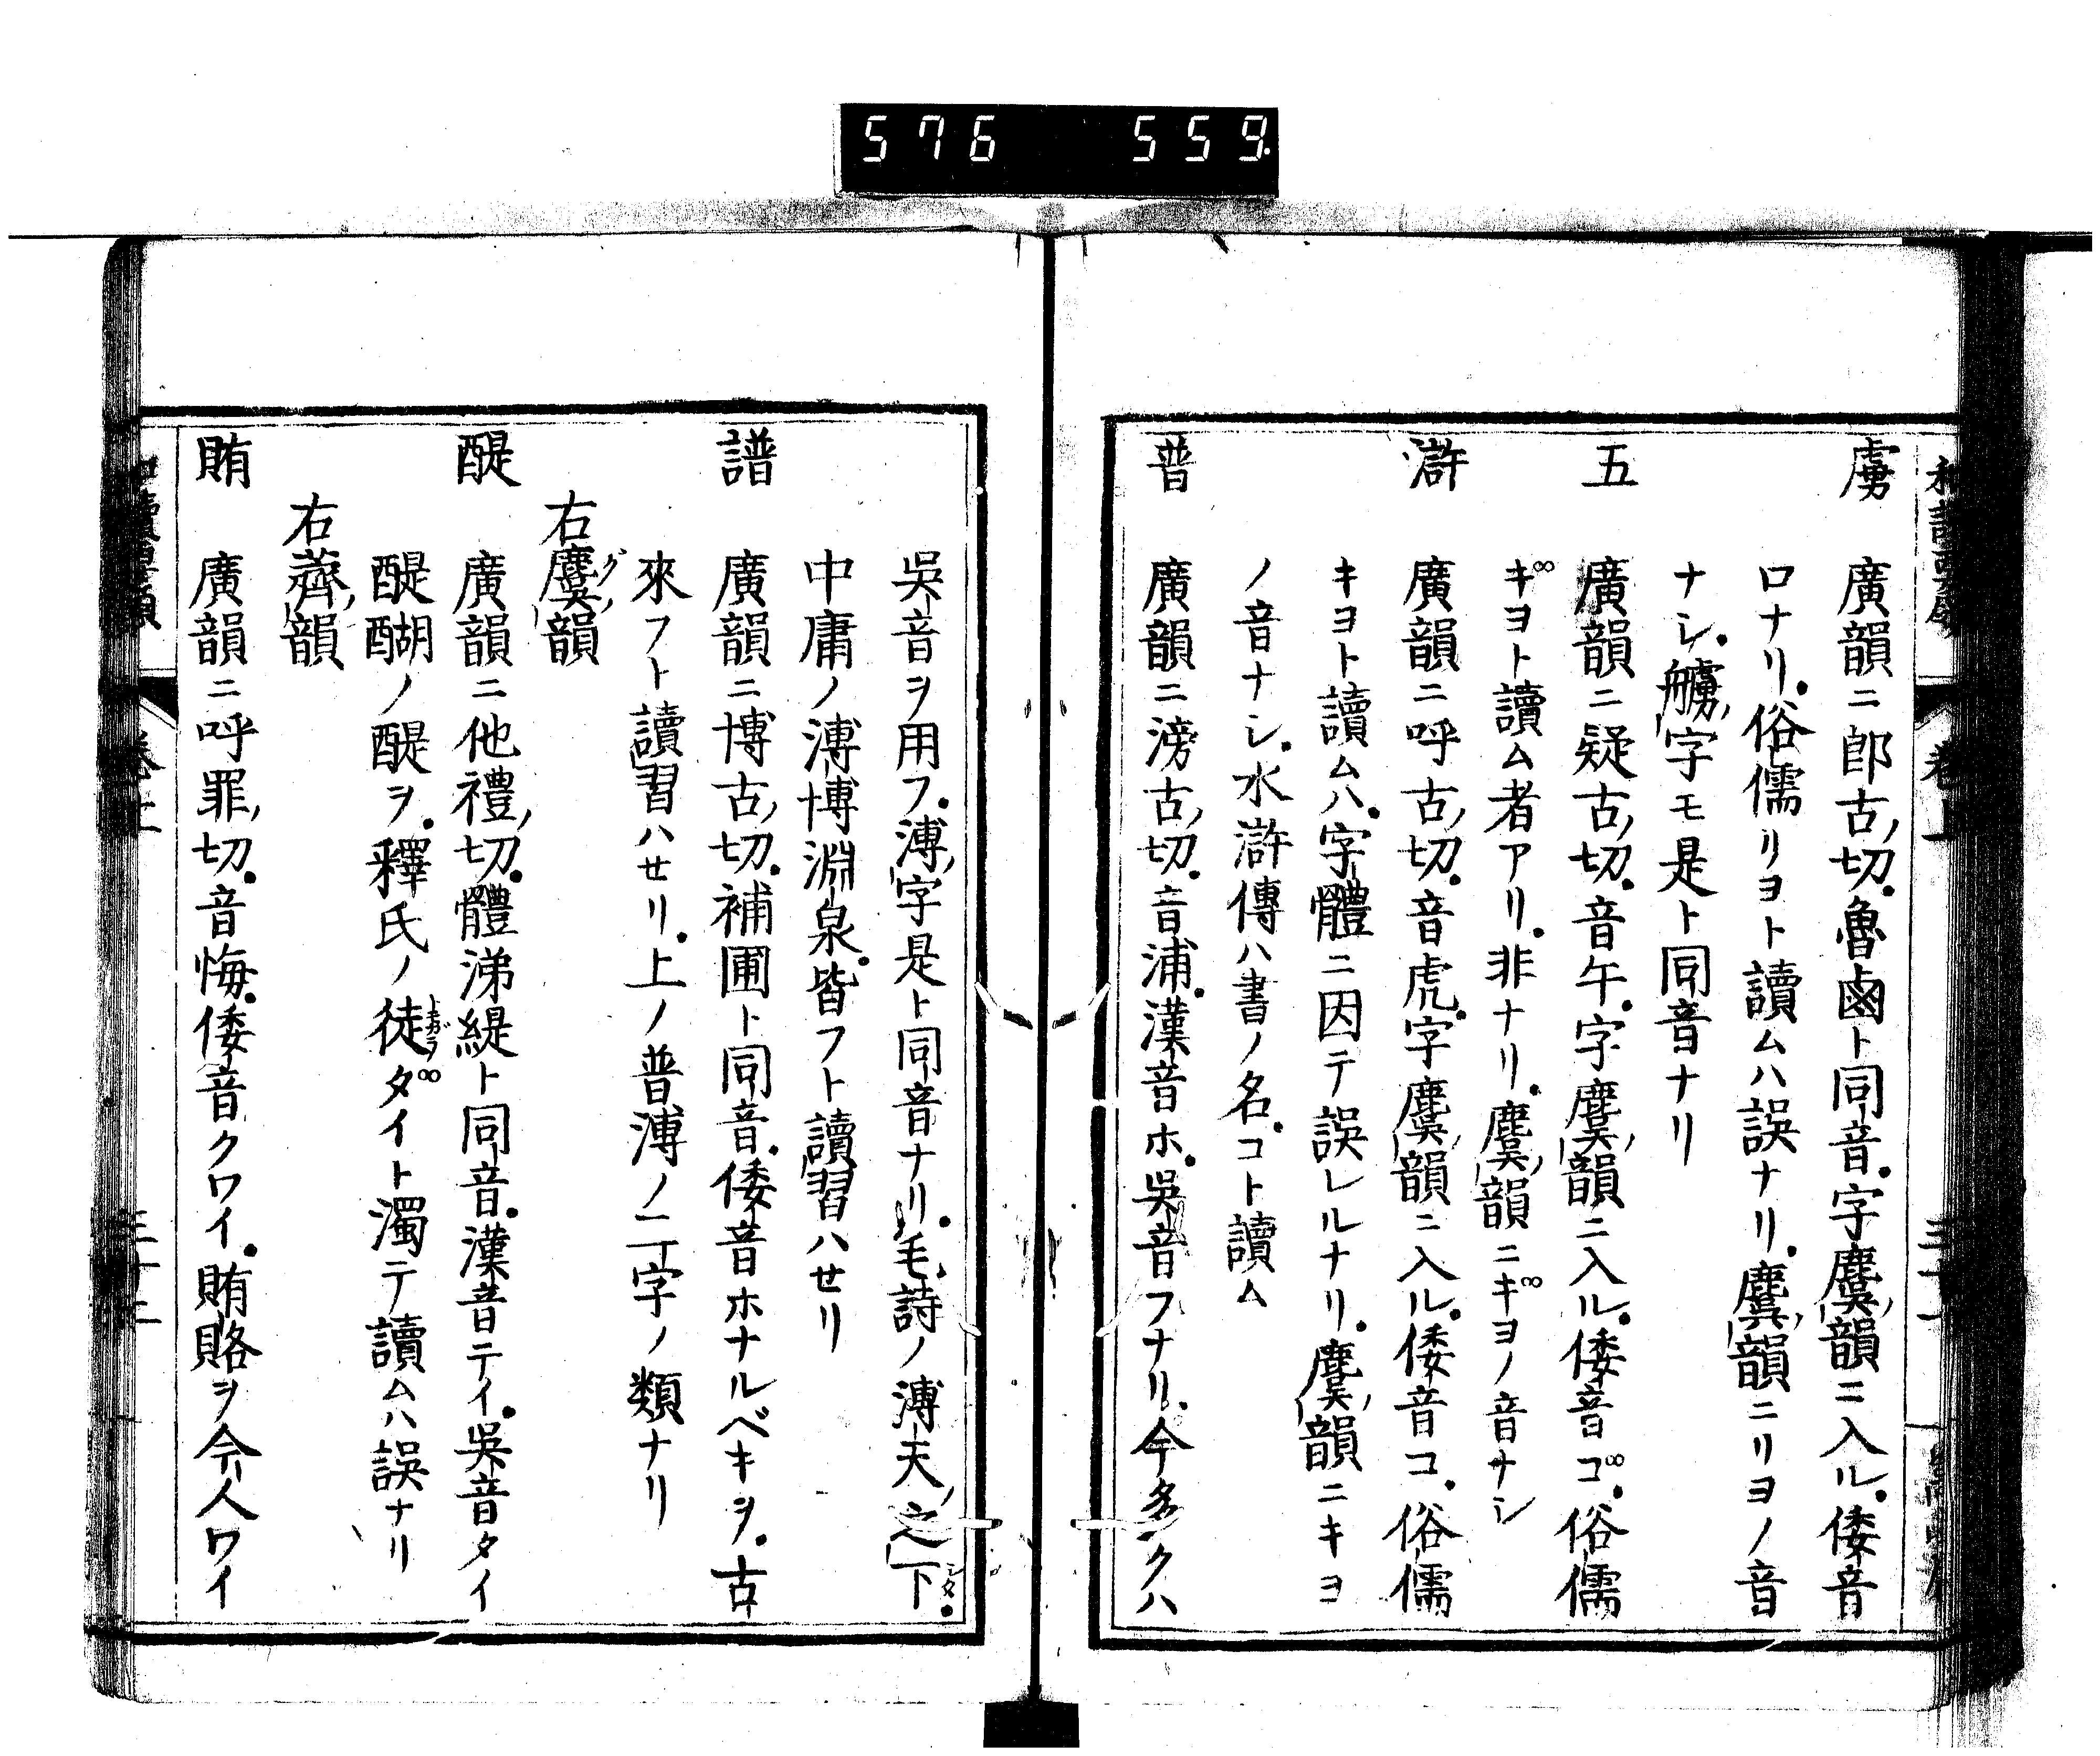 576 559
虜 廣韻ニ郎古切。魯鹵ト同音。字麌韻ニ入ル。倭音
ロナリ。俗儒リヨト讀ムハ誤ナリ。麌韻ニリヨノ音
ナシ。艣字モ是ト同音ナリ
五 廣韻ニ疑古切。音午。字麌韻ニ入ル。倭音ゴ。俗儒
ギヨト讀ム者アリ。非ナリ。麌韻ニギヨノ音ナシ
滸 廣韻ニ呼古切。音虎。字麌韻ニ入ル。倭音コ。俗儒
キヨト讀ムハ。字體ニ因テ誤レルナリ。麌韻ニキヨ
ノ音ナシ。水滸傳ハ書ノ名。コト讀ム
普 廣韻ニ滂古切。音浦。漢音ホ。吳音フナリ。今多クハ
吳音ヲ用フ。溥字是ト同音ナリ。毛詩ノ溥天之下シタ。
中庸ノ溥博淵泉。皆フト讀習ハセリ
譜 廣韻ニ博古切。補圃ト同音。倭音ホナルベキヲ。古
來フト讀習ハセリ。上ノ普溥ノ二字ノ類ナリ
右麌グ韻
醍 廣韻ニ他禮切。體涕緹ト同音。漢音テイ。吳音タイ
醍醐ノ醍ヲ。釋氏ノ徒トモガラダイト濁テ讀ムハ誤ナリ
右薺韻
賄 廣韻ニ呼罪切。音悔。倭音クワイ。賄賂ヲ今人ワイ